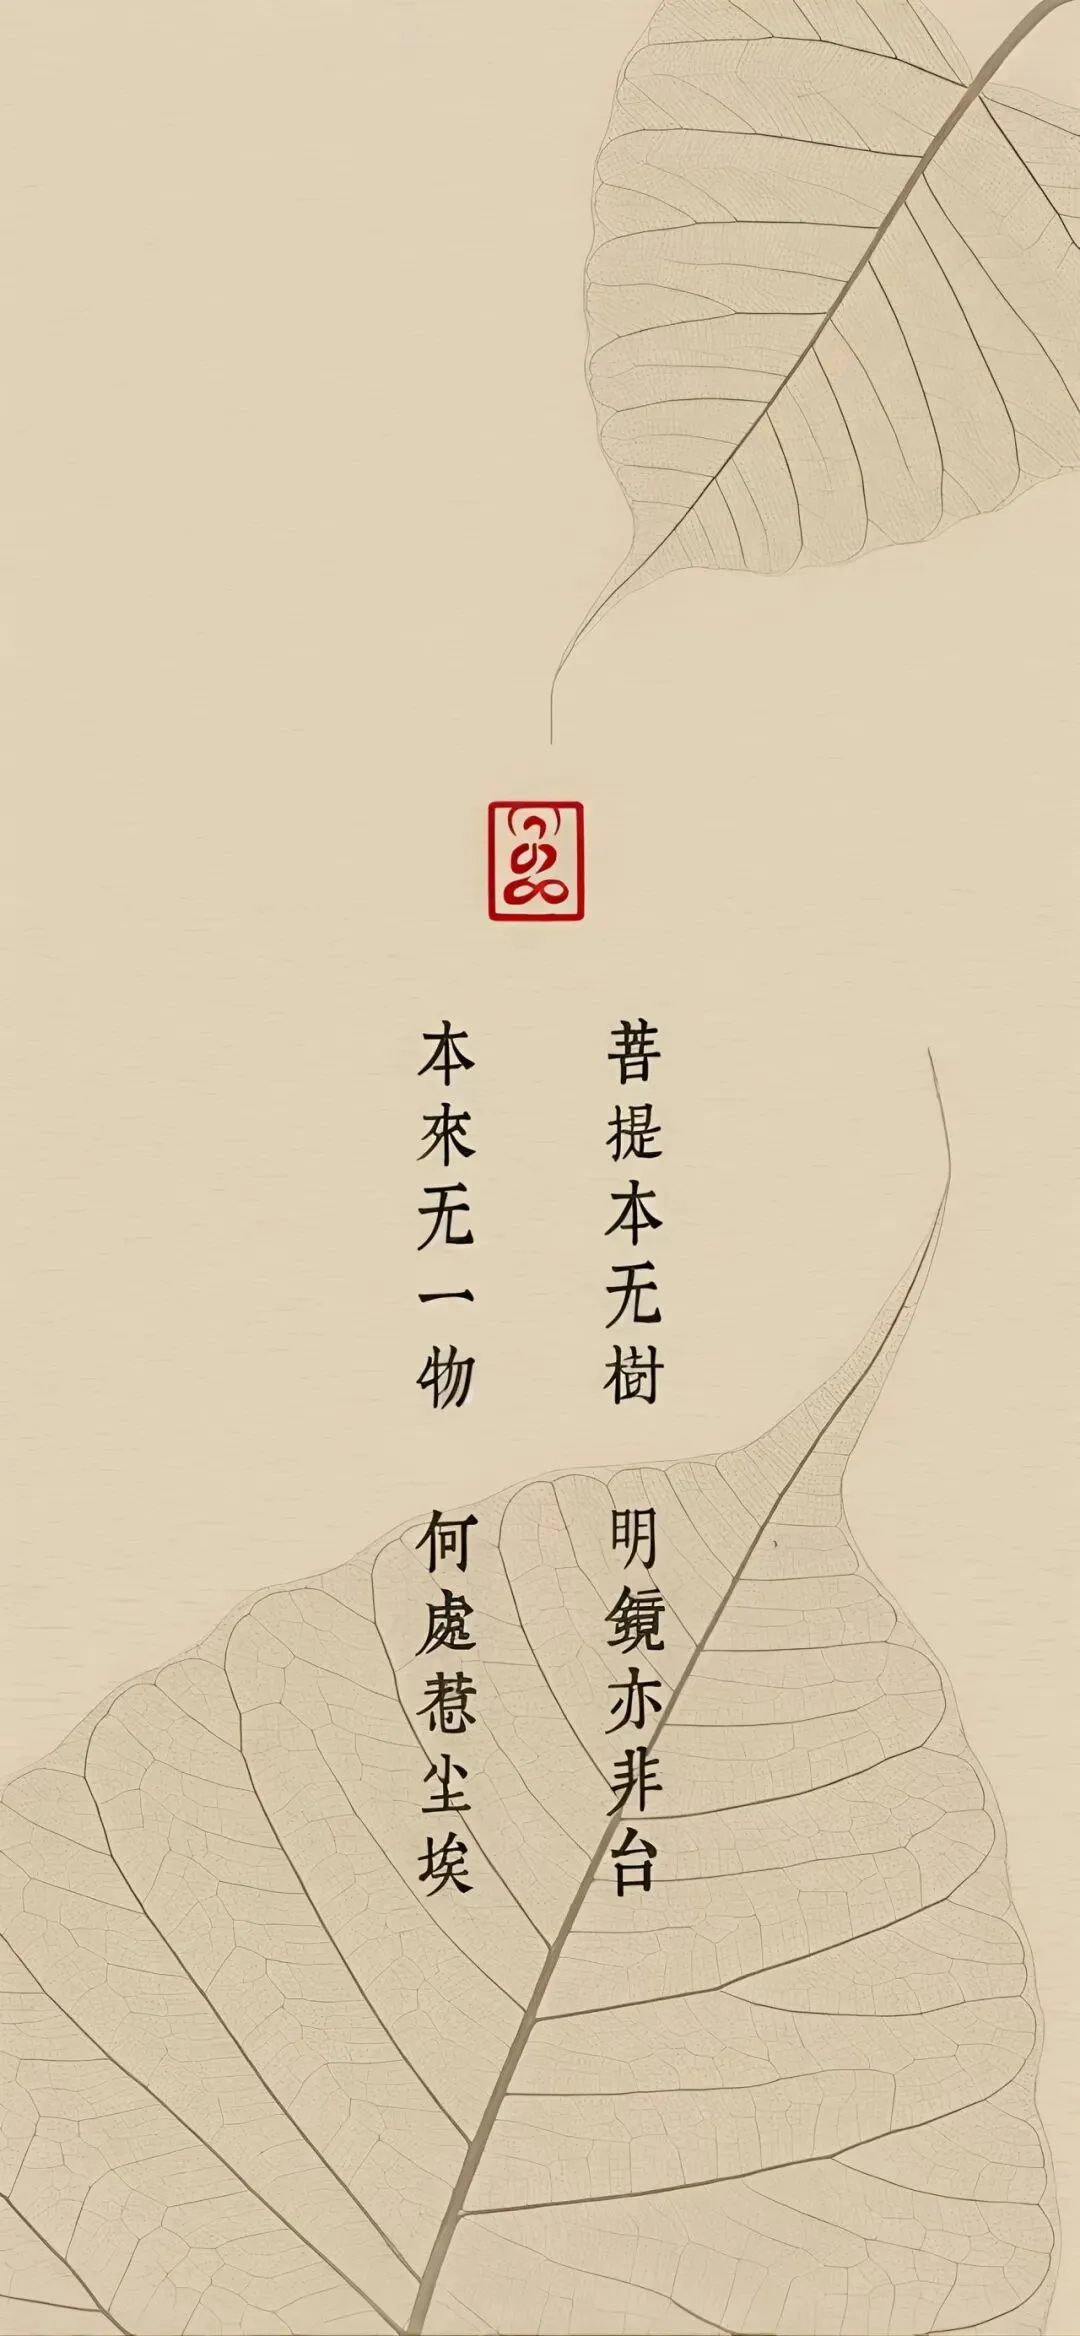 菩提本无樹
明鏡亦非台
本來无一物
何處惹尘埃